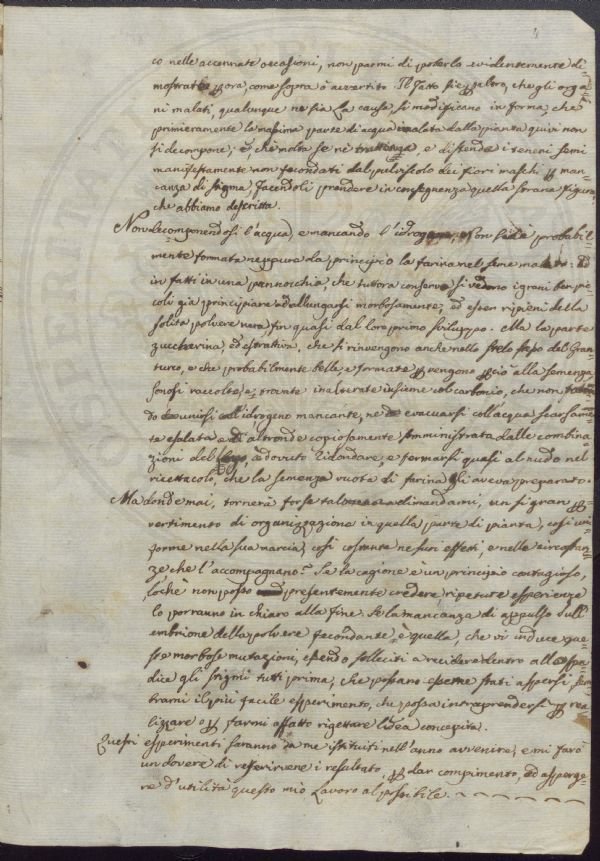 4
co nelle accennate occasioni, non parmi di poterlo evidentemente di=
mostrare ꝑ ora, come sopra ò avvertito. Il fatto si è ꝑ altro, che gli orga
ni malati, qualunque ne sia la causa, si modificano in forma, che
primieramente la massima parte di acqua inalata dalla pianta quivi non
si decompone; e, che molta se ne trattenga e distende i teneri semi
manifestamente non fecondati dal pulviscolo dei fiori maschi ꝑ man=
canza di stigma, facendoli prendere in conseguenza quella strana figura,
che abbiamo descritta.
Non decomponendosi l'acqua, e mancando l'idrogeno, non si è probabil=
mente formata neppure da principio la farina nel seme ed
in fatti in una pannocchia, che tuttora conservo si vedono i grani ben pic
coli già principiare ad allungarsi morbosamente, ed esser ripieni della
solita polvere nera fin quasi dal loro primo sviluppo. Ma la parte
zuccherina, ed estrattiva, che si rinvengono anche nello stelo stesso del Gran
turco, e che probabilmente belle, e formate vengono ꝑciò alla semenza
sonosi raccolte, e, trovate inalterate insieme col carbonio, che non
do unirsi all'idrogeno mancante, ne evacuarsi coll'acqua scarsame
te esalata e di altronde copiosamente somministrata dalle combina
zioni del à dovuto ridondare, e formarsi quasi al nudo nel
ricettacolo, che la semenza vuota di farina gli aveva preparato.
Ma donde mai, tornerà forse taluno a dimandarmi, un sì gran ꝑ=
vertimento di organizzazione in quella parte di pianta, così uni
forme nella sua marcia, così costante ne suoi effetti, e nelle circostan=
ze che l'accompagnano? Se la cagione è un principio contagioso,
lochè non posso presentemente credere ripetute esperienze
lo porranno in chiaro alla fine. Se la mancanza di appulso sull'
embrione della polvere fecondante è quella, che vi induce que=
ste morbose mutazioni, essendo solleciti a recidere dentro all'
dice gli stigmi tutti prima, che possano esserne stati aspersi, sem
brami il più facile esperimento, che possa intraprendersi ꝑ rea
lizzare o ꝑ farmi affatto rigettare l'idea concepita.
Questi esperimenti saranno da me istituiti nell'anno avvenire, e mi farò
un dovere di riferirvene i resultato, ꝑ dar compimento, ed asperge
re d'utilità questo mio Lavoro al possibile.